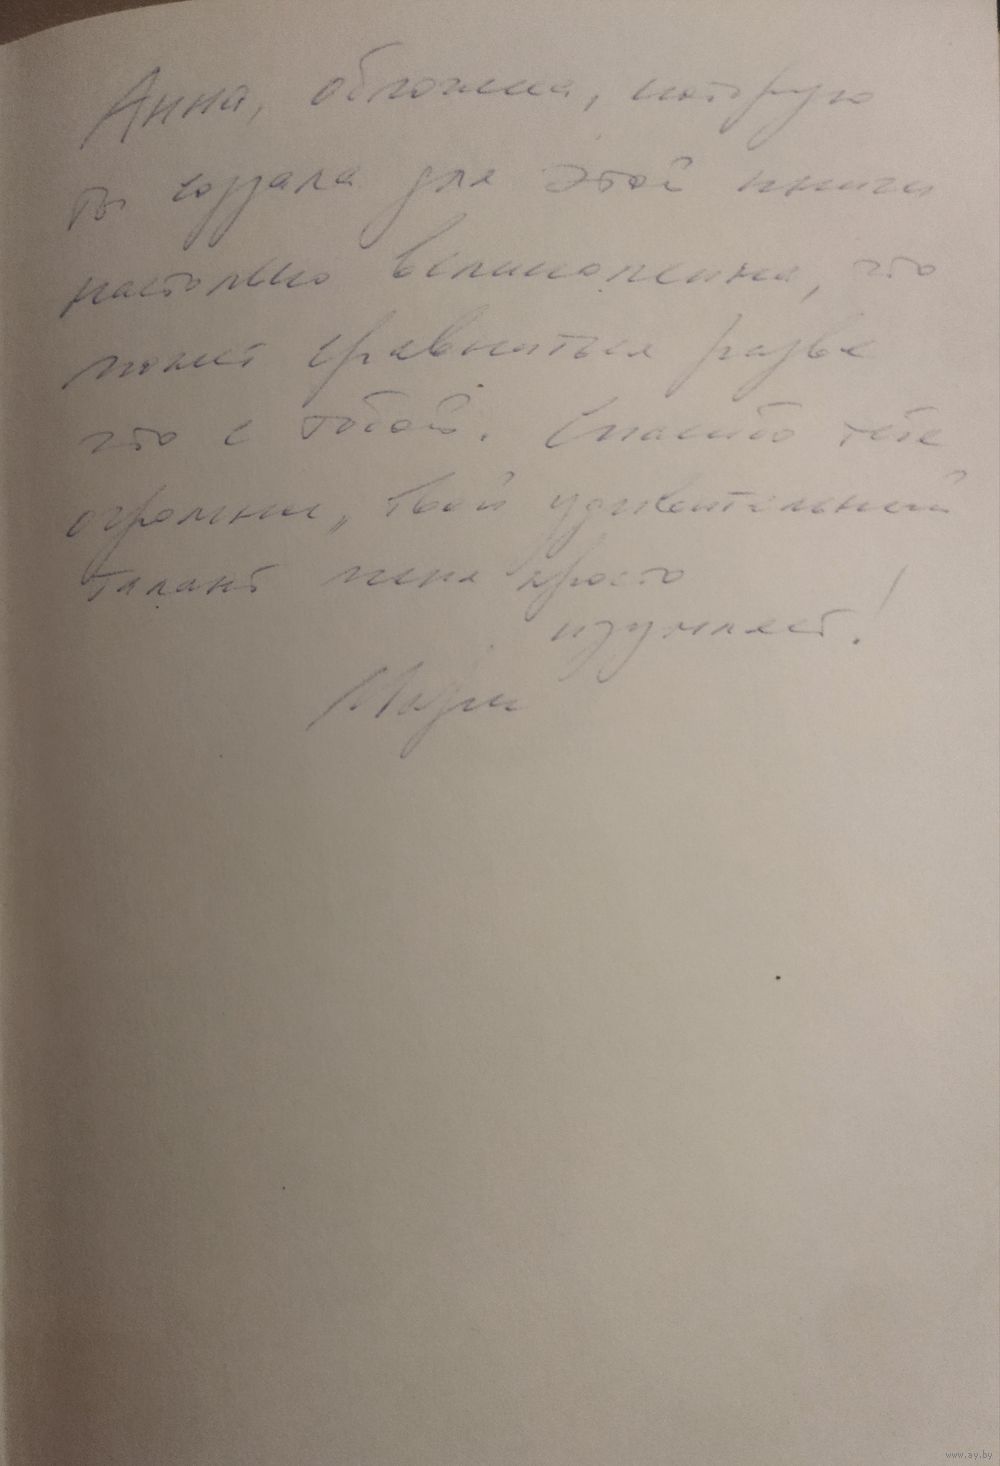 Анна, обложка, которую
ты создала для этой книги
настолько великолепна, что
может сравниться разве
что с тобой. Спасибо тебе
огромное, твой удивительный
талант меня просто
изумляет!
www.ay.by